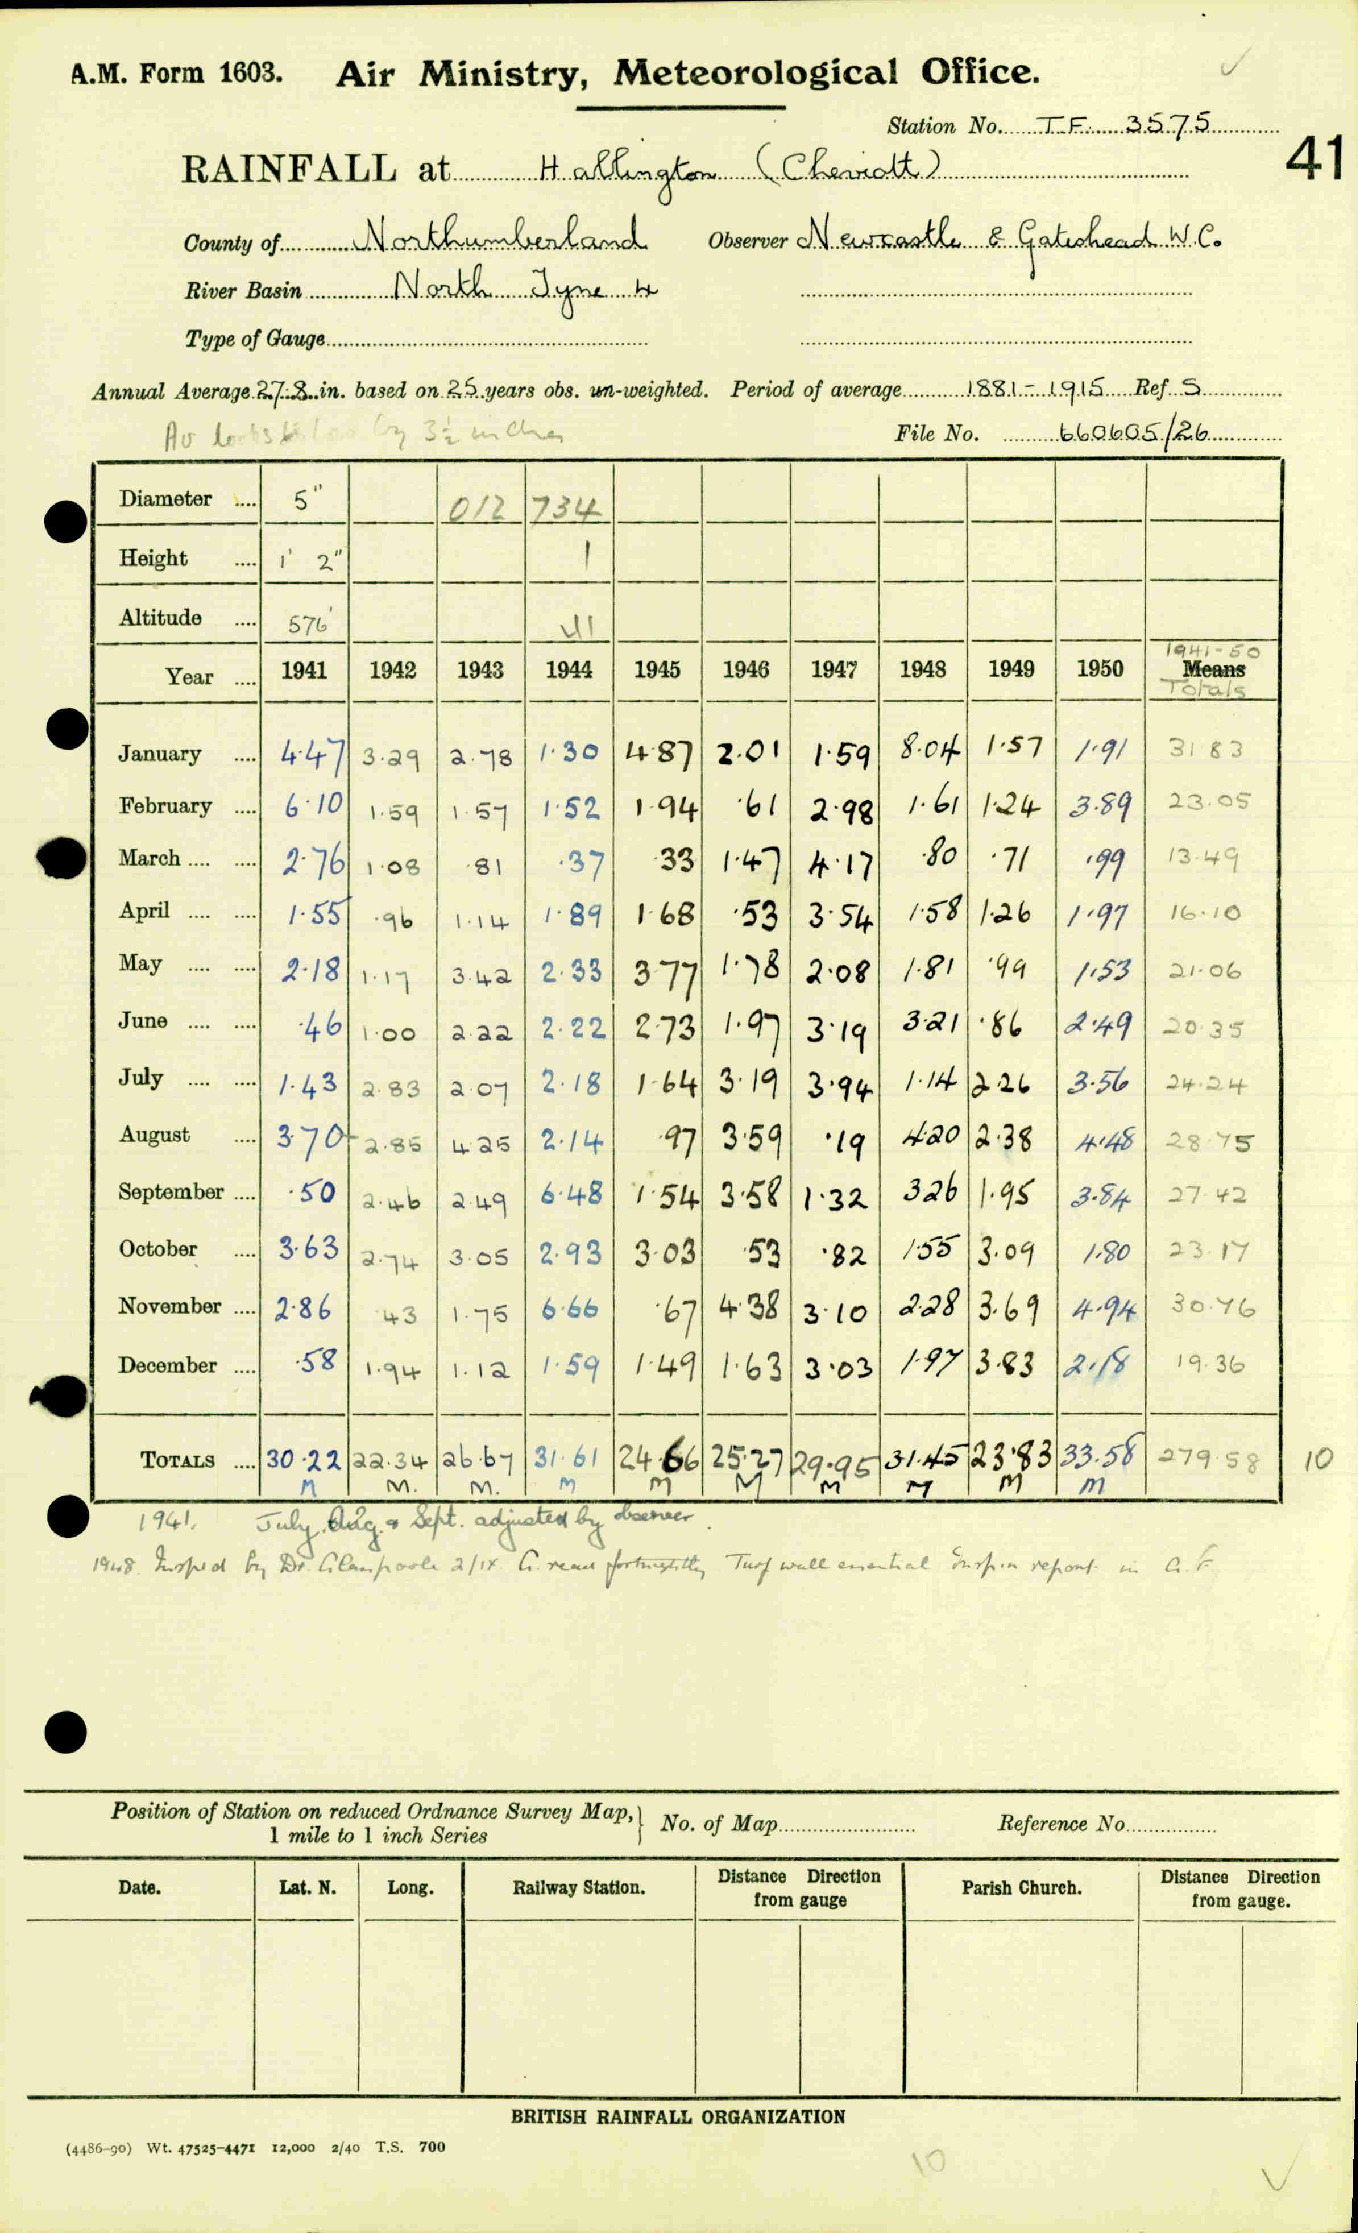 A.M. Form 1603. Air Ministry, Meteorological Office.
Station No. T.F. 3575
41
RAINFALL at Hallington (Cheviott)
County of Northumberland Observer Newcastle & Gateshead W.C.
River Basin North Tyne 4
Type of Gauge
Annual Average 27.8 in. based on 25 years obs. un-weighted. Period of average 1881-1915 Ref S
Av looks too by 3½ inches
File No. 660605/26
Diameter .... 5" 012 734
Height .... 1' 2" 1
Altitude .... 576' 41
1941-50
Year .... 1941 1942 1943 1944 1945 1946 1947 1948 1949 1950 Means
Totals
January .... 4.47 3.29 2.78 1.30 4.87 2.01 1.59 8.04 1.57 1.91 31 83
February .... 6.10 1.59 1.57 1.52 1.94 .61 2.98 1.61 1.24 3.89 23.05
March .... .... 2.76 1.08 .81 .37 .33 1.47 4.17 .80 .71 .99 13.49
April .... .... 1.55 .96 1.14 1.89 1.68 .53 3.54 1.58 1.26 1.97 16.10
May .... .... 2.18 1.17 3.42 2.33 3.77 1.78 2.08 1.81 .99 1.53 21.06
June .... .... .46 1.00 2.22 2.22 2.73 1.97 3.19 3.21 .86 2.49 20.35
July .... .... 1.43 2.83 2.07 2.18 1.64 3.19 3.94 1.14 2.26 3.56 24.24
August .... 3.70 2.85 4.25 2.14 .97 3.59 .19 4.20 2.38 4.48 28.75
September .... .50 2.46 2.49 6.48 1.54 3.58 1.32 3.26 1.95 3.84 27.42
October .... 3.63 2.74 3.05 2.93 3.03 .53 .82 1.55 3.09 1.80 23.17
November .... 2.86 43 1.75 6.66 .67 4.38 3.10 2.28 3.69 4.94 30.76
December .... .58 1.94 1.12 1.59 1.49 1.63 3.03 1.97 3.83 2.18 19.36
TOTALS .... 30.22 22.34 26.67 31.61 24.66 25.27 29.95 31.45 23.83 33.58 279.58 10
M M. M. M M M M M M M
1941. July, Aug. & Sept. adjusted by observer.
1948. Insp'd by Dr. Glasspoole 2/IX G. read fortnightly Turf wall essential Insp'n report in G.F.
Position of Station on reduced Ordnance Survey Map, } No. of Map Reference No.
1 mile to 1 inch Series
Date. Lat. N. Long. Railway Station. Distance from gauge Direction Parish Church. Distance from gauge. Direction
BRITISH RAINFALL ORGANIZATION
(4486-90) Wt. 47525-4471 12,000 2/40 T.S. 700
10